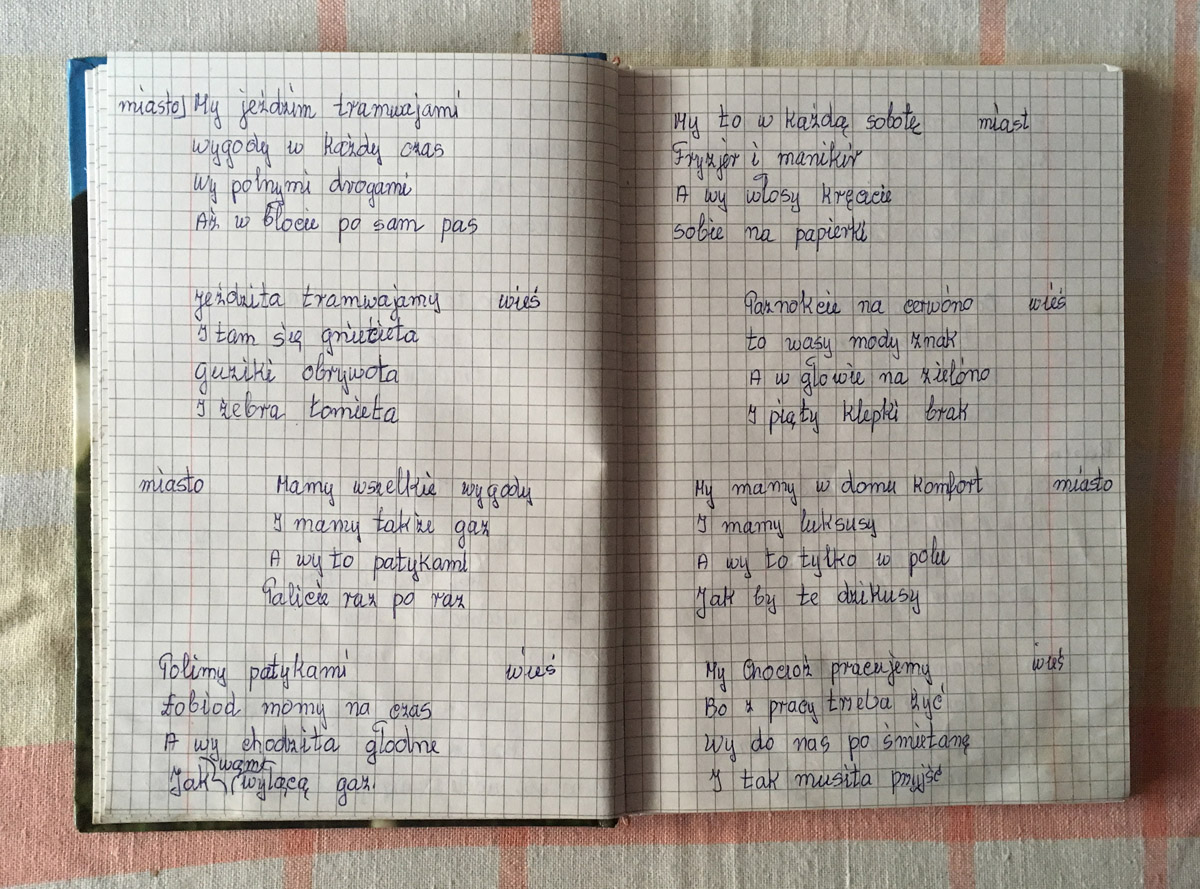 miasto] My jeździm tramwajami
wygody w każdy czas
Wy polnymi drogami
Aż w błocie po sam pas
Jeździta tramwajamy wieś
I tam się gnieciéta
guziki obrywota
I żebra łomieta
miasto Mamy wszelkie wygody
I mamy także gaz
A wy to patykami
Palicie raz po raz
Polimy patykami wieś
Łobiod momy na czas
A wy chodzita głodne
Jak wam wyłącą gaz.
My to w każdą sobotę miast
Fryzjer i manikir
A wy włosy kręcicie
sobie na papierki
Paznokcie na cerwóno wieś
to wasy mody znak
A w głowie na zielóno
I piąty klepki brak
My mamy w domu komfort miasto
I mamy luksusy
A wy to tylko w polu
Jak by te dzikusy
My Chocioż pracujemy wieś
Bo z pracy trzeba żyć
Wy do nas po śmietanę
I tak musita przyjść